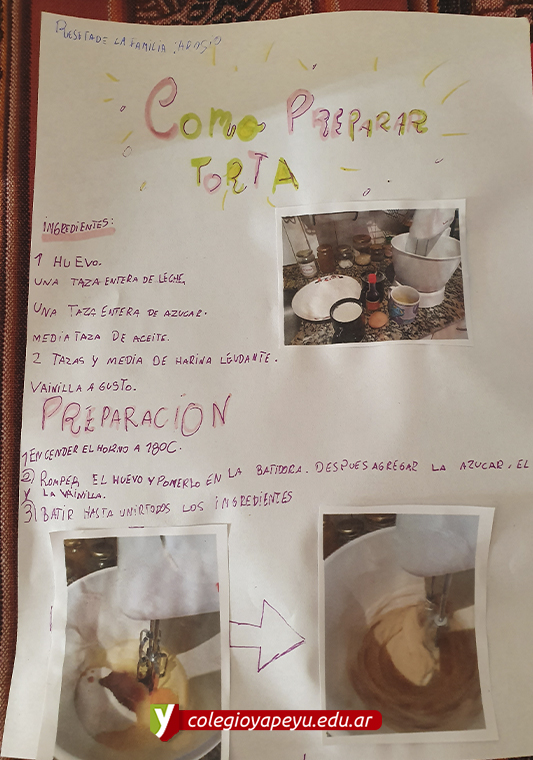 DE LA FAMILIA
COMO PREPARAR
TORTA
INGREDIENTES:
1 HUEVO.
UNA TAZA ENTERA DE LECHE,
UNA TAZA ENTERA DE AZUCAR.
MEDIA TAZA DE ACEITE.
2 TAZAS Y MEDIA DE HARINA LEUDANTE.
VAINILLA A GUSTO.
PREPARACIÓN
1 ENCENDER EL HORNO A 180C.
2) ROMPER EL HUEVO Y PONERLO EN LA BATIDORA. DESPUES AGREGAR LA AZUCAR, EL
Y LA VAINILLA.
3) BATIR HASTA UNIR TODOS LOS INGREDIENTES
y colegioyapeyu.edu.ar